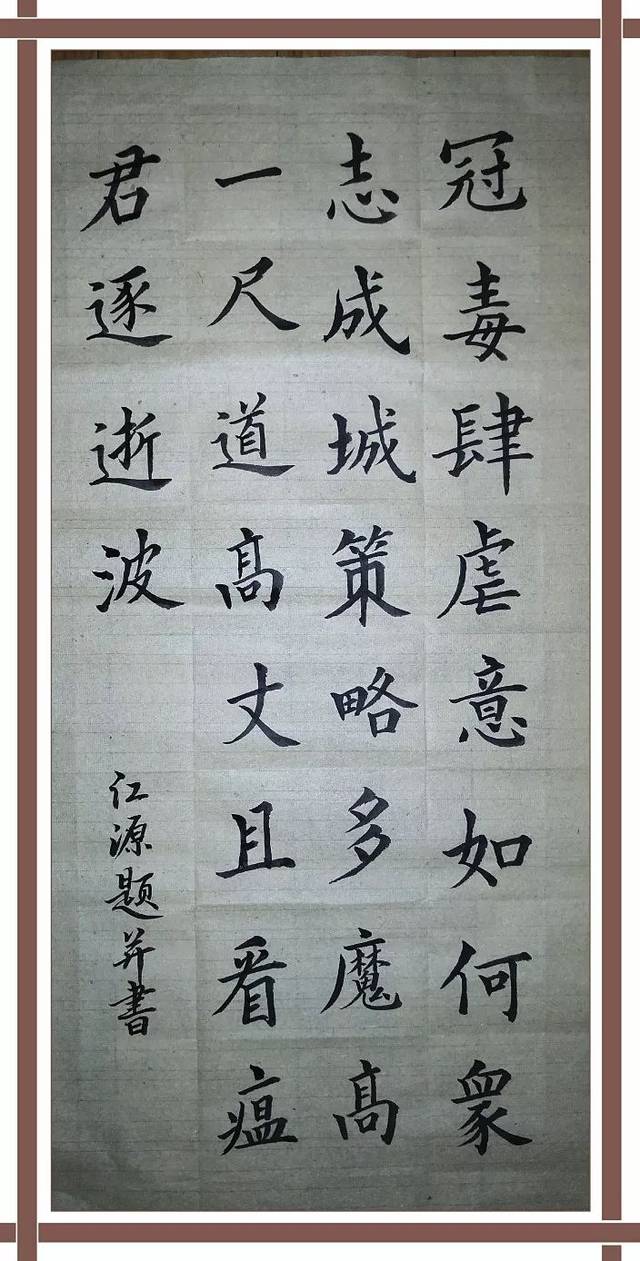 冠毒肆虐意如何衆
志成城策略多魔高
一尺道高丈且看瘟
君逐逝波
江源题并書